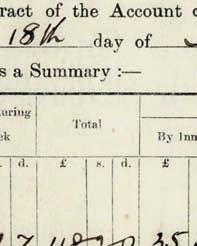 ract of the Account o
18th day of
s a Summary :—
uring
ek
Total
By Inn
d. £ s. d. £